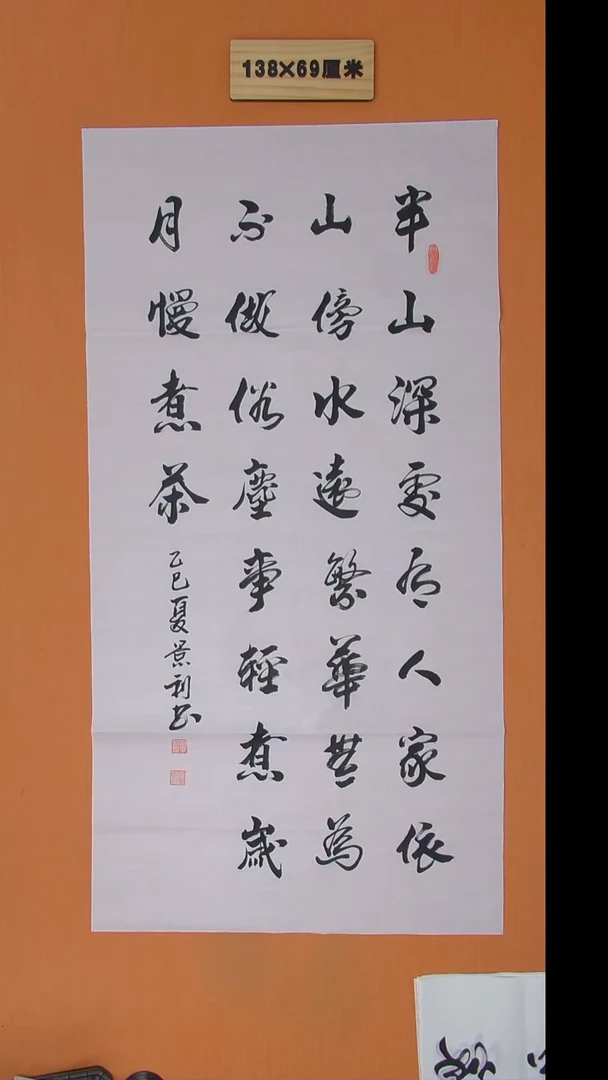 138×69厘米
半山深處有人家依
山傍水遠繁華無為
不做俗塵事輕煮歲
月慢煮茶
乙巳夏景利书